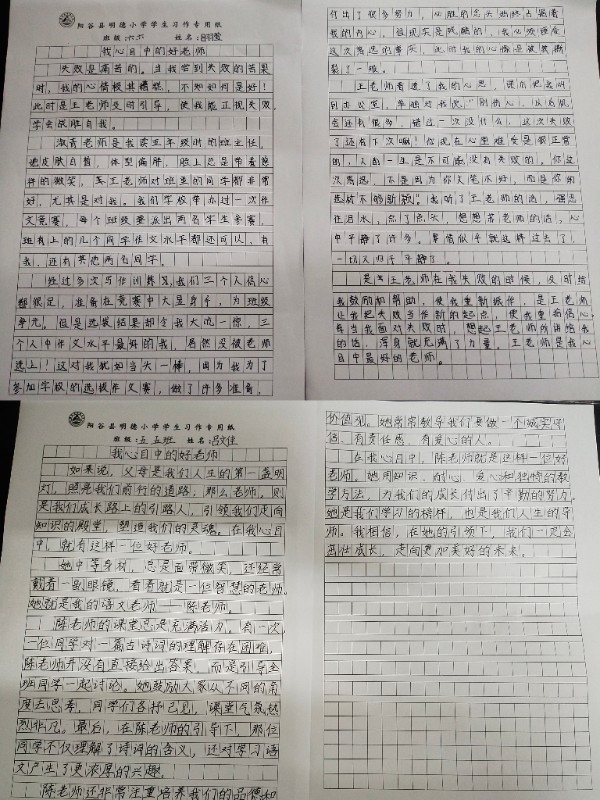 阳谷县明德小学学生习作专用纸
班级:六六 姓名:
我心目中的好老师
失败是痛苦的。当我尝到失败的苦果
时,我的心情极其糟糕,不知如何是好!
此时是王老师及时的引导,使我能正视失败
学会战胜自我。
淑青老师是我读五年级时的班主任。
她皮肤白皙,体型偏胖,脸上总是带着慈
祥的微笑,王老师对班里的同学都非常
好,尤其是对我。我们学校举办过一次作
文竞赛,每个班级要派出两名学生参赛,
班有上的几个同学作文水平都还可以,有
去,还有其他两名同学。
经过多次写作训练后,我们三个人信心
都很足,准备在竞赛中大显身手,为班级
争光。但是选拔结果却令我大吃一惊,三
个人中作文水平最好的我,居然没被老师
选上!这对我犹如当头一棒,因为我为了
参加学校的选拔作文赛,做了许多准备,
付出了很多努力,必胜的念头始终占据着
我的内心,但现实是残酷的,我必须接受
这次落选的事实,此时我的心情是被紧绷
王老师看透了我的心思,课后把我叫
到办公室,单独对我说:"别伤心,以后机
会还有很多,错过一次没什么,这次失败
了还有下次嘛!你现在心里难受是很正常
的,人的一生是不可能没有失败的。你这
次落选,不是因为你文笔不好,而是你的
选材不够新颖。我听了王老师的话,强忍
住泪水,点了点头,想想老师的话,心
中平静了许多。事情似乎就这样过去了,
一切又归于平静了。
是王老师在我失败的时候,及时给
我鼓励和帮助,使我重新振作,是王老师
让我把失败当作新的起点,使我重拾信心。
每当我面对失败时,想起王老师所讲给我
的话,浑身就充满了力量。王老师是我心
目中最好的老师。
阳谷县明德小学学生习作专用纸
班级:五五班 姓名:吕文佳
我心目中的好老师
如果说,父母是我们人生的第一盏明
灯,照亮我们前行的道路,那么老师,则
是我们成长路上的引路人,引领我们走向
知识的殿堂,塑造我们的灵魂。在我心目
中,就有这样一位好老师。
她中等身材,总是面带微笑,还经常
戴着一副眼镜,看着就是一位智慧的老师。
她就是我的语文老师——陈老师。
陈老师的课堂总是充满活力,有一次,
一位同学对一篇古诗词的理解存在困难,
陈老师并没有直接给出答案,而是引导全
班同学一起讨论。她鼓励大家从不同的角
度去思考,同学们各抒己见,课堂气氛热
烈非凡。最后,在陈老师的引导下,那位
同学不仅理解了诗词的含义,还对学习语
文产生了更浓厚的兴趣。
陈老师还非常注重培养我们的品德和
价值观。她常常教导我们要做一个诚实守
信、有责任感、有爱心的人。
在我心目中,陈老师就是这样一位好
老师。她用知识、耐心、爱心和独特的教
学方法,为我们的成长付出了辛勤的努力。
她是我们学习的榜样,也是我们人生的导
师。我相信,在她的引领下,我们一定会
茁壮成长,走向更加美好的未来。